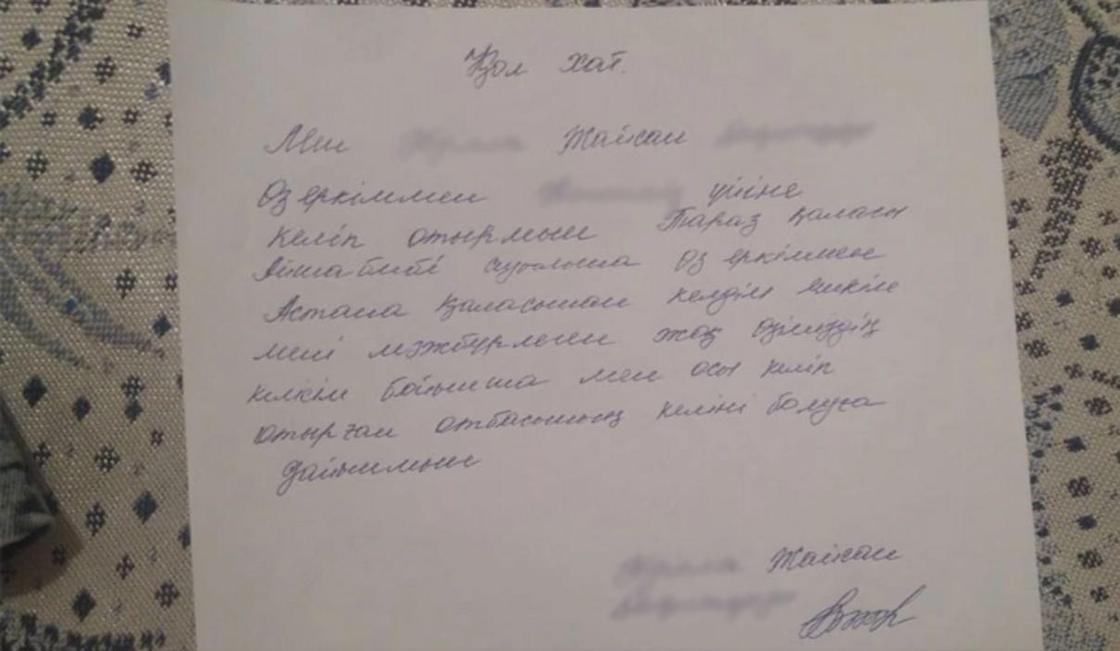 Қол хат.
Мен Жайсан
Өз еркіммен үйіне
келіп отырмын Тараз қаласы
Айша бибі ауылына өз еркіммен
Астана қаласынан келдім ешкім
мені мәжбүрлеген жоқ өзіміздің
келісім бойынша мен осы келіп
отырған отбасының келіні болуға
дайынмын
Жайсан